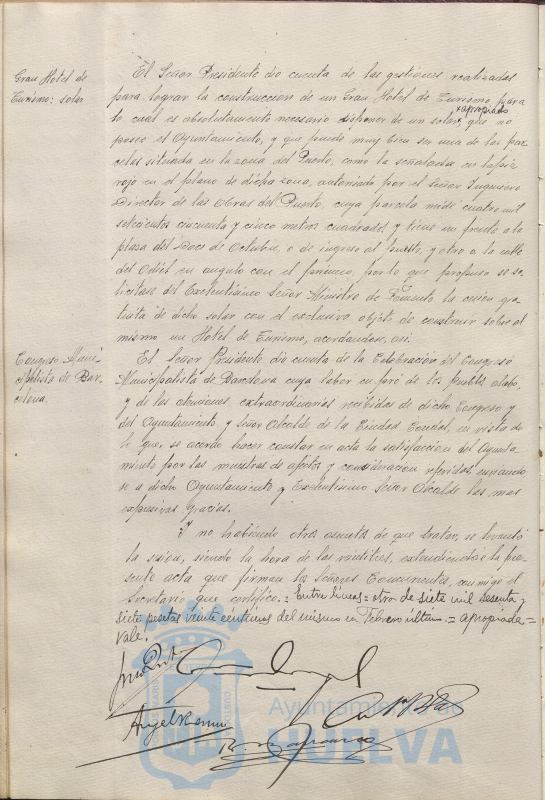 Gran Hotel de
Turismo: solar
El Señor Presidente dio cuenta de las gestiones realizadas
para lograr la construccion de un Gran Hotel de Turismo, para
lo cual es absolutamente necesario disponer de un solar, que no
apropiado
posee el Ayuntamiento, y que puede muy bien ser una de las par-
celas situada en la zona del Puerto, como la señalada en lapiz
rojo en el plano de dicha zona, autorizado por el Señor Ingeniero
Director de las Obras del Puerto, cuya parcela mide cuatro mil
setecientos cincuenta y cinco metros cuadrados y tiene un frente a la
plaza del Doce de Octubre, o de ingreso al puerto, y otro a la calle
del Odiel en angulo con el primero, por lo que propuso se so-
licitase del Excelentisimo Señor Ministro de Fomento la cesion gra-
tuita de dicho solar con el exclusivo objeto de construir sobre el
mismo un Hotel de Turismo, acordandose, asi.
Congreso Muni-
cipalista de Bar-
celona.
El Señor Presidente dio cuenta de la Celebración del Congreso
Municipalista de Barcelona cuya labor en pró de los pueblos alabo,
y de las atenciones extraordinarias recibidas de dicho Congreso y
del Ayuntamiento y Señor Alcalde de la Ciudad Condal, en vista de
lo que, se acordo hacer constar en acta la satisfaccion del Ayunta-
miento por las muestras de afecto y consideración referidas, enviando-
se a dicho Ayuntamiento y Excelentisimo Señor Alcalde las mas
expresivas gracias.
Y no habiendo otros asuntos de que tratar, se levantó
la sesion, siendo la hora de las veintitres, extendiendose la pre-
sente acta que firman los Señores Concurrentes, conmigo el
Secretario que certifico.= Entre lineas = otro de siete mil sesenta y
siete pesetas veinte céntimos del mismo en Febrero último = apropiada =
vale.
Ayuntamiento de
HUELVA